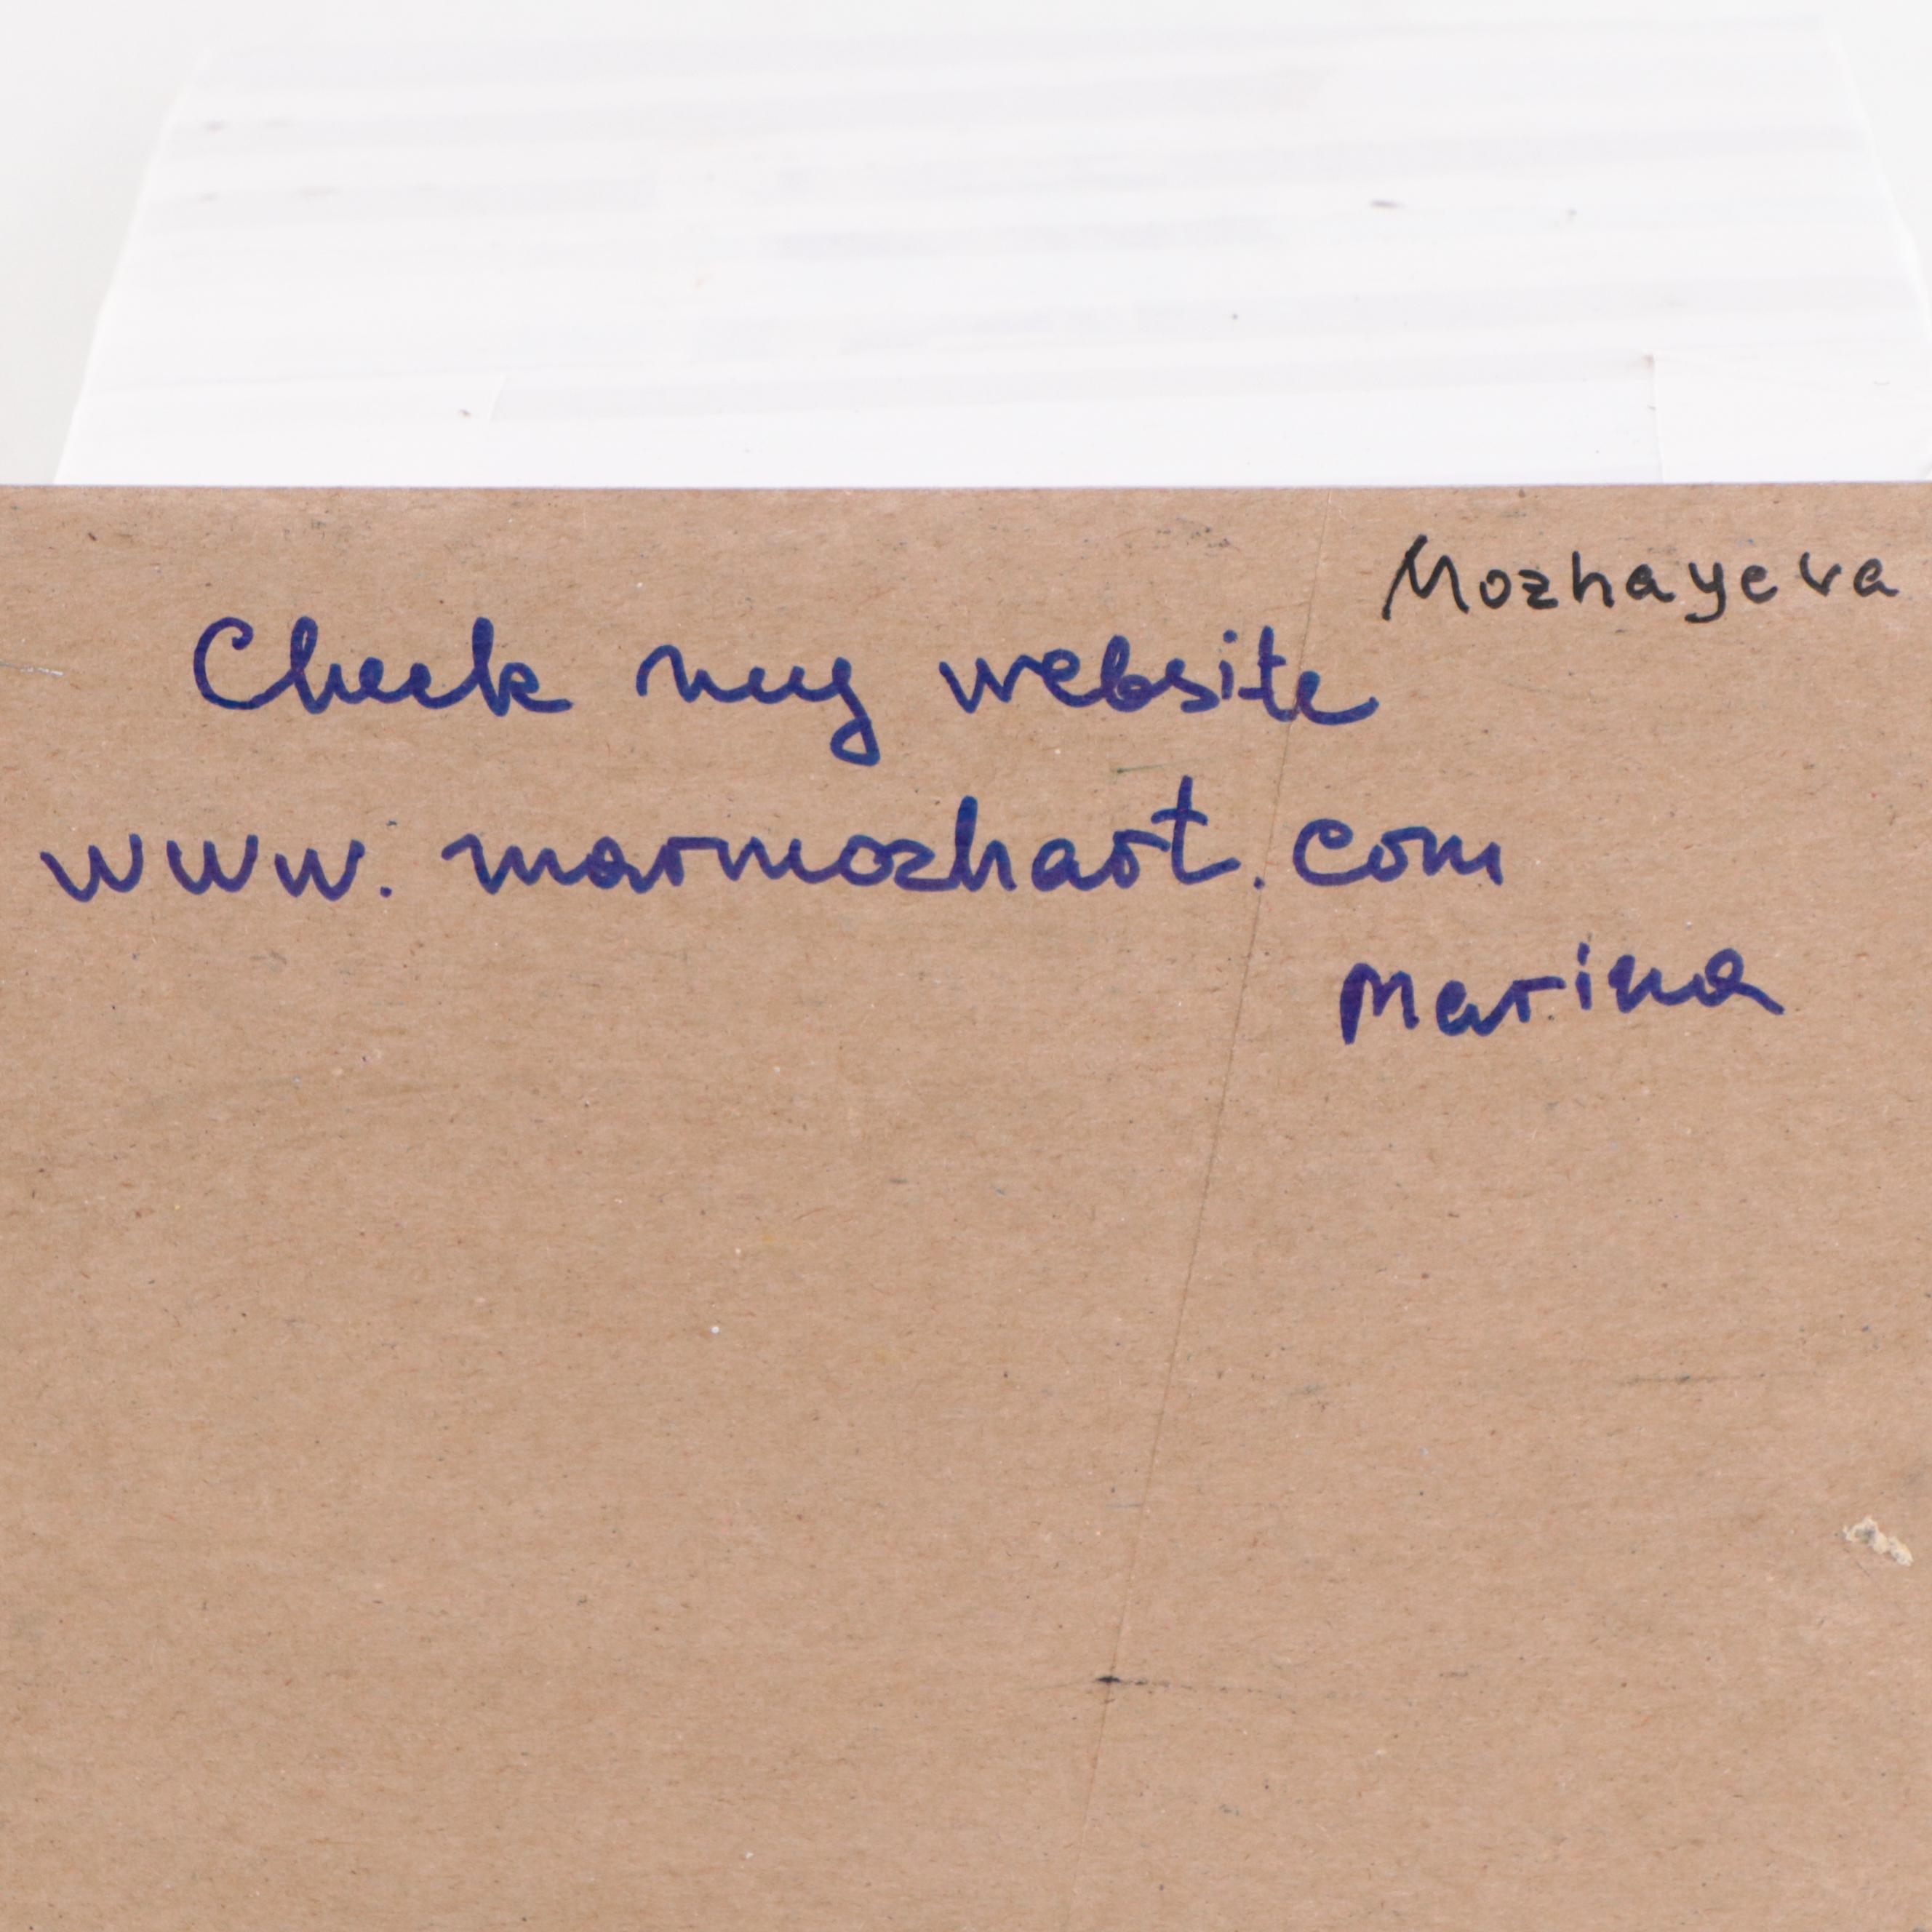 Mozhayeva
Check my website
www.marmozhart.com
Marina